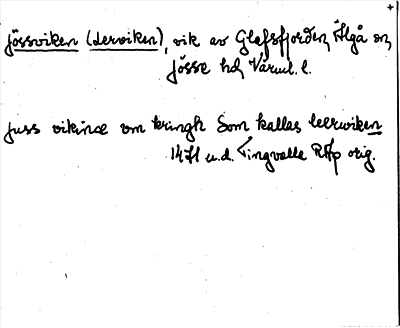 Jössviken (Lerviken), vik av Glafsfjorden, Älgå sn,
Jösse hd, Värml. l.
juss vikinæ om kringh som kallas leerwiken
1471 u.d. Tingvalla RAp orig.